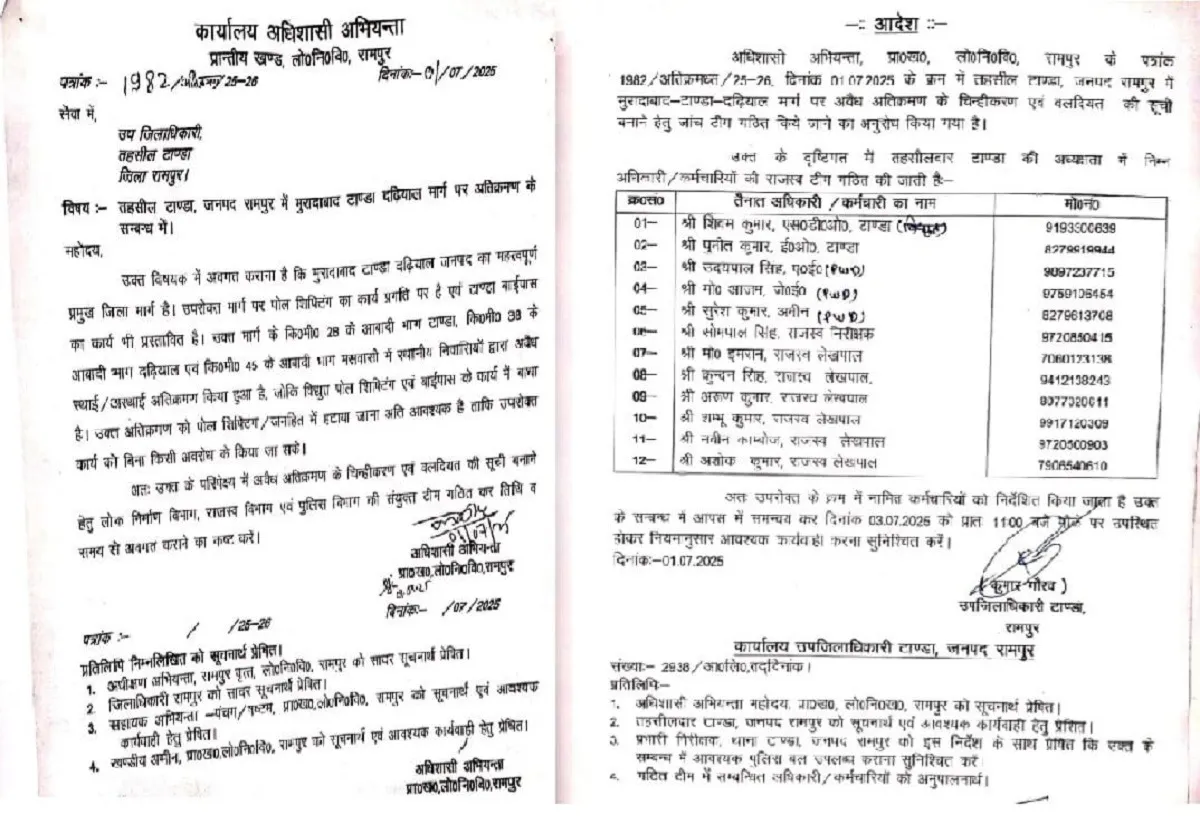 कार्यालय अधिशासी अभियन्ता
प्रान्तीय खण्ड, लो0नि0वि0, रामपुर
पत्रांक :- 1982/ /25-26 दिनांक-01/07/2025
सेवा में,
उप जिलाधिकारी,
तहसील टाण्डा
जिला रामपुर।
विषय :- तहसील टाण्डा, जनपद रामपुर में मुरादाबाद टाण्डा दढ़ियाल मार्ग पर अतिक्रमण के
सम्बन्ध में।
महोदय,
उक्त विषयक में अवगत कराना है कि मुरादाबाद टाण्डा दढ़ियाल जनपद का महत्वपूर्ण
प्रमुख जिला मार्ग है। उपरोक्त मार्ग पर पोल शिफ्टिंग का कार्य प्रगति पर है एवं टाण्डा बाईपास
का कार्य भी प्रस्तावित है। उक्त मार्ग के कि0मी0 28 के आबादी भाग टाण्डा, कि0मी0 38 के
आबादी भाग दढ़ियाल एवं कि0मी0 45 के आबादी भाग मसवासी में स्थानीय निवासियों द्वारा अवैध
स्थाई/अस्थाई अतिक्रमण किया हुआ है, जोकि विद्युत पोल शिफ्टिंग एवं बाईपास के कार्य में बाधा
है। उक्त अतिक्रमण को पोल शिफ्टिंग/जनहित में हटाया जाना अति आवश्यक है ताकि उपरोक्त
कार्य को बिना किसी अवरोध के किया जा सके।
अतः उक्त के परिपेक्ष्य में अवैध अतिक्रमण के चिन्हीकरण एवं वलदियत की सूची बनाने
हेतु लोक निर्माण विभाग, राजस्व विभाग एवं पुलिस विभाग की संयुक्त टीम गठित कर तिथि व
समय से अवगत कराने का कष्ट करें।
अधिशासी अभियन्ता
प्रा0ख0,लो0नि0वि0,रामपुर
पत्रांक :- / /25-26 दिनांक- /07/2025
प्रतिलिपि निम्नलिखित को सूचनार्थ प्रेषित।
1. अधीक्षण अभियन्ता, रामपुर वृत्त, लो0नि0वि0, रामपुर को सादर सूचनार्थ प्रेषित।
2. जिलाधिकारी रामपुर को सादर सूचनार्थ प्रेषित।
3. सहायक अभियन्ता -पंचम/षष्टम, प्रा0ख0,लो0नि0वि0, रामपुर को सूचनार्थ एवं आवश्यक
कार्यवाही हेतु प्रेषित।
4. खण्डीय अमीन, प्रा0ख0,लो0नि0वि0, रामपुर को सूचनार्थ एवं आवश्यक कार्यवाही हेतु प्रेषित।
अधिशासी अभियन्ता
प्रा0ख0,लो0नि0वि0,रामपुर
-: आदेश :-
अधिशासी अभियन्ता, प्रा0ख0, लो0नि0वि0, रामपुर के पत्रांक
1982/अतिक्रमण/25-26, दिनांक 01.07.2025 के क्रम में तहसील टाण्डा, जनपद रामपुर में
मुरादाबाद-टाण्डा-दढ़ियाल मार्ग पर अवैध अतिक्रमण के चिन्हीकरण एवं वलदियत की सूची
बनाने हेतु जांच टीम गठित किये जाने का अनुरोध किया गया है।
उक्त के दृष्टिगत में तहसीलदार टाण्डा की अध्यक्षता में निम्न
अधिकारी/कर्मचारियों की राजस्व टीम गठित की जाती है:-
क्र0सं0 तैनात अधिकारी/कर्मचारी का नाम मो0नं0
01- श्री शिवम कुमार, एस0डी0ओ0, टाण्डा (विद्युत) 9193300639
02- श्री पुनीत कुमार, ई0ओ0, टाण्डा 8279919944
03- श्री उदयपाल सिंह, ए0ई0 (PWD) 9097237715
04- श्री मो0 आजम, जे0ई0 (PWD) 9759106454
05- श्री सुरेश कुमार, अमीन (PWD) 8279613708
06- श्री सोमपाल सिंह, राजस्व निरीक्षक 9720850415
07- श्री मो0 इमरान, राजस्व लेखपाल 7060123138
08- श्री कुन्दन सिंह, राजस्व लेखपाल, 9412138243
09- श्री अरूण कुमार, राजस्व लेखपाल
10- श्री शम्भू कुमार, राजस्व लेखपाल 9917120309
11- श्री नवीन काम्बोज, राजस्व लेखपाल 9720500903
12- श्री अशोक कुमार, राजस्व लेखपाल 7906540610
अतः उपरोक्त के क्रम में नामित कर्मचारियों को निर्देशित किया जाता है उक्त
के सम्बन्ध में आपस में समन्वय कर दिनांक 03.07.2025 को प्रातः 11:00 बजे मौके पर उपस्थित
होकर नियमानुसार आवश्यक कार्यवाही करना सुनिश्चित करें।
दिनांक:-01.07.2025
(कुमार गौरव)
उपजिलाधिकारी टाण्डा,
रामपुर
कार्यालय उपजिलाधिकारी टाण्डा, जनपद रामपुर
संख्या:- 2938/आ0लि0,तद्दिनांक।
प्रतिलिपि:-
1. अधिशासी अभियन्ता महोदय, प्रा0ख0, लो0नि0ख0, रामपुर को सूचनार्थ प्रेषित।
2. तहसीलदार टाण्डा, जनपद रामपुर को सूचनार्थ एवं आवश्यक कार्यवाही हेतु प्रेषित।
3. प्रभारी निरीक्षक, थाना टाण्डा, जनपद रामपुर को इस निर्देश के साथ प्रेषित कि उक्त के
सम्बन्ध में आवश्यक पुलिस बल उपलब्ध कराना सुनिश्चित करें
4. गठित टीम में सम्बन्धित अधिकारी/कर्मचारियों को अनुपालनार्थ।